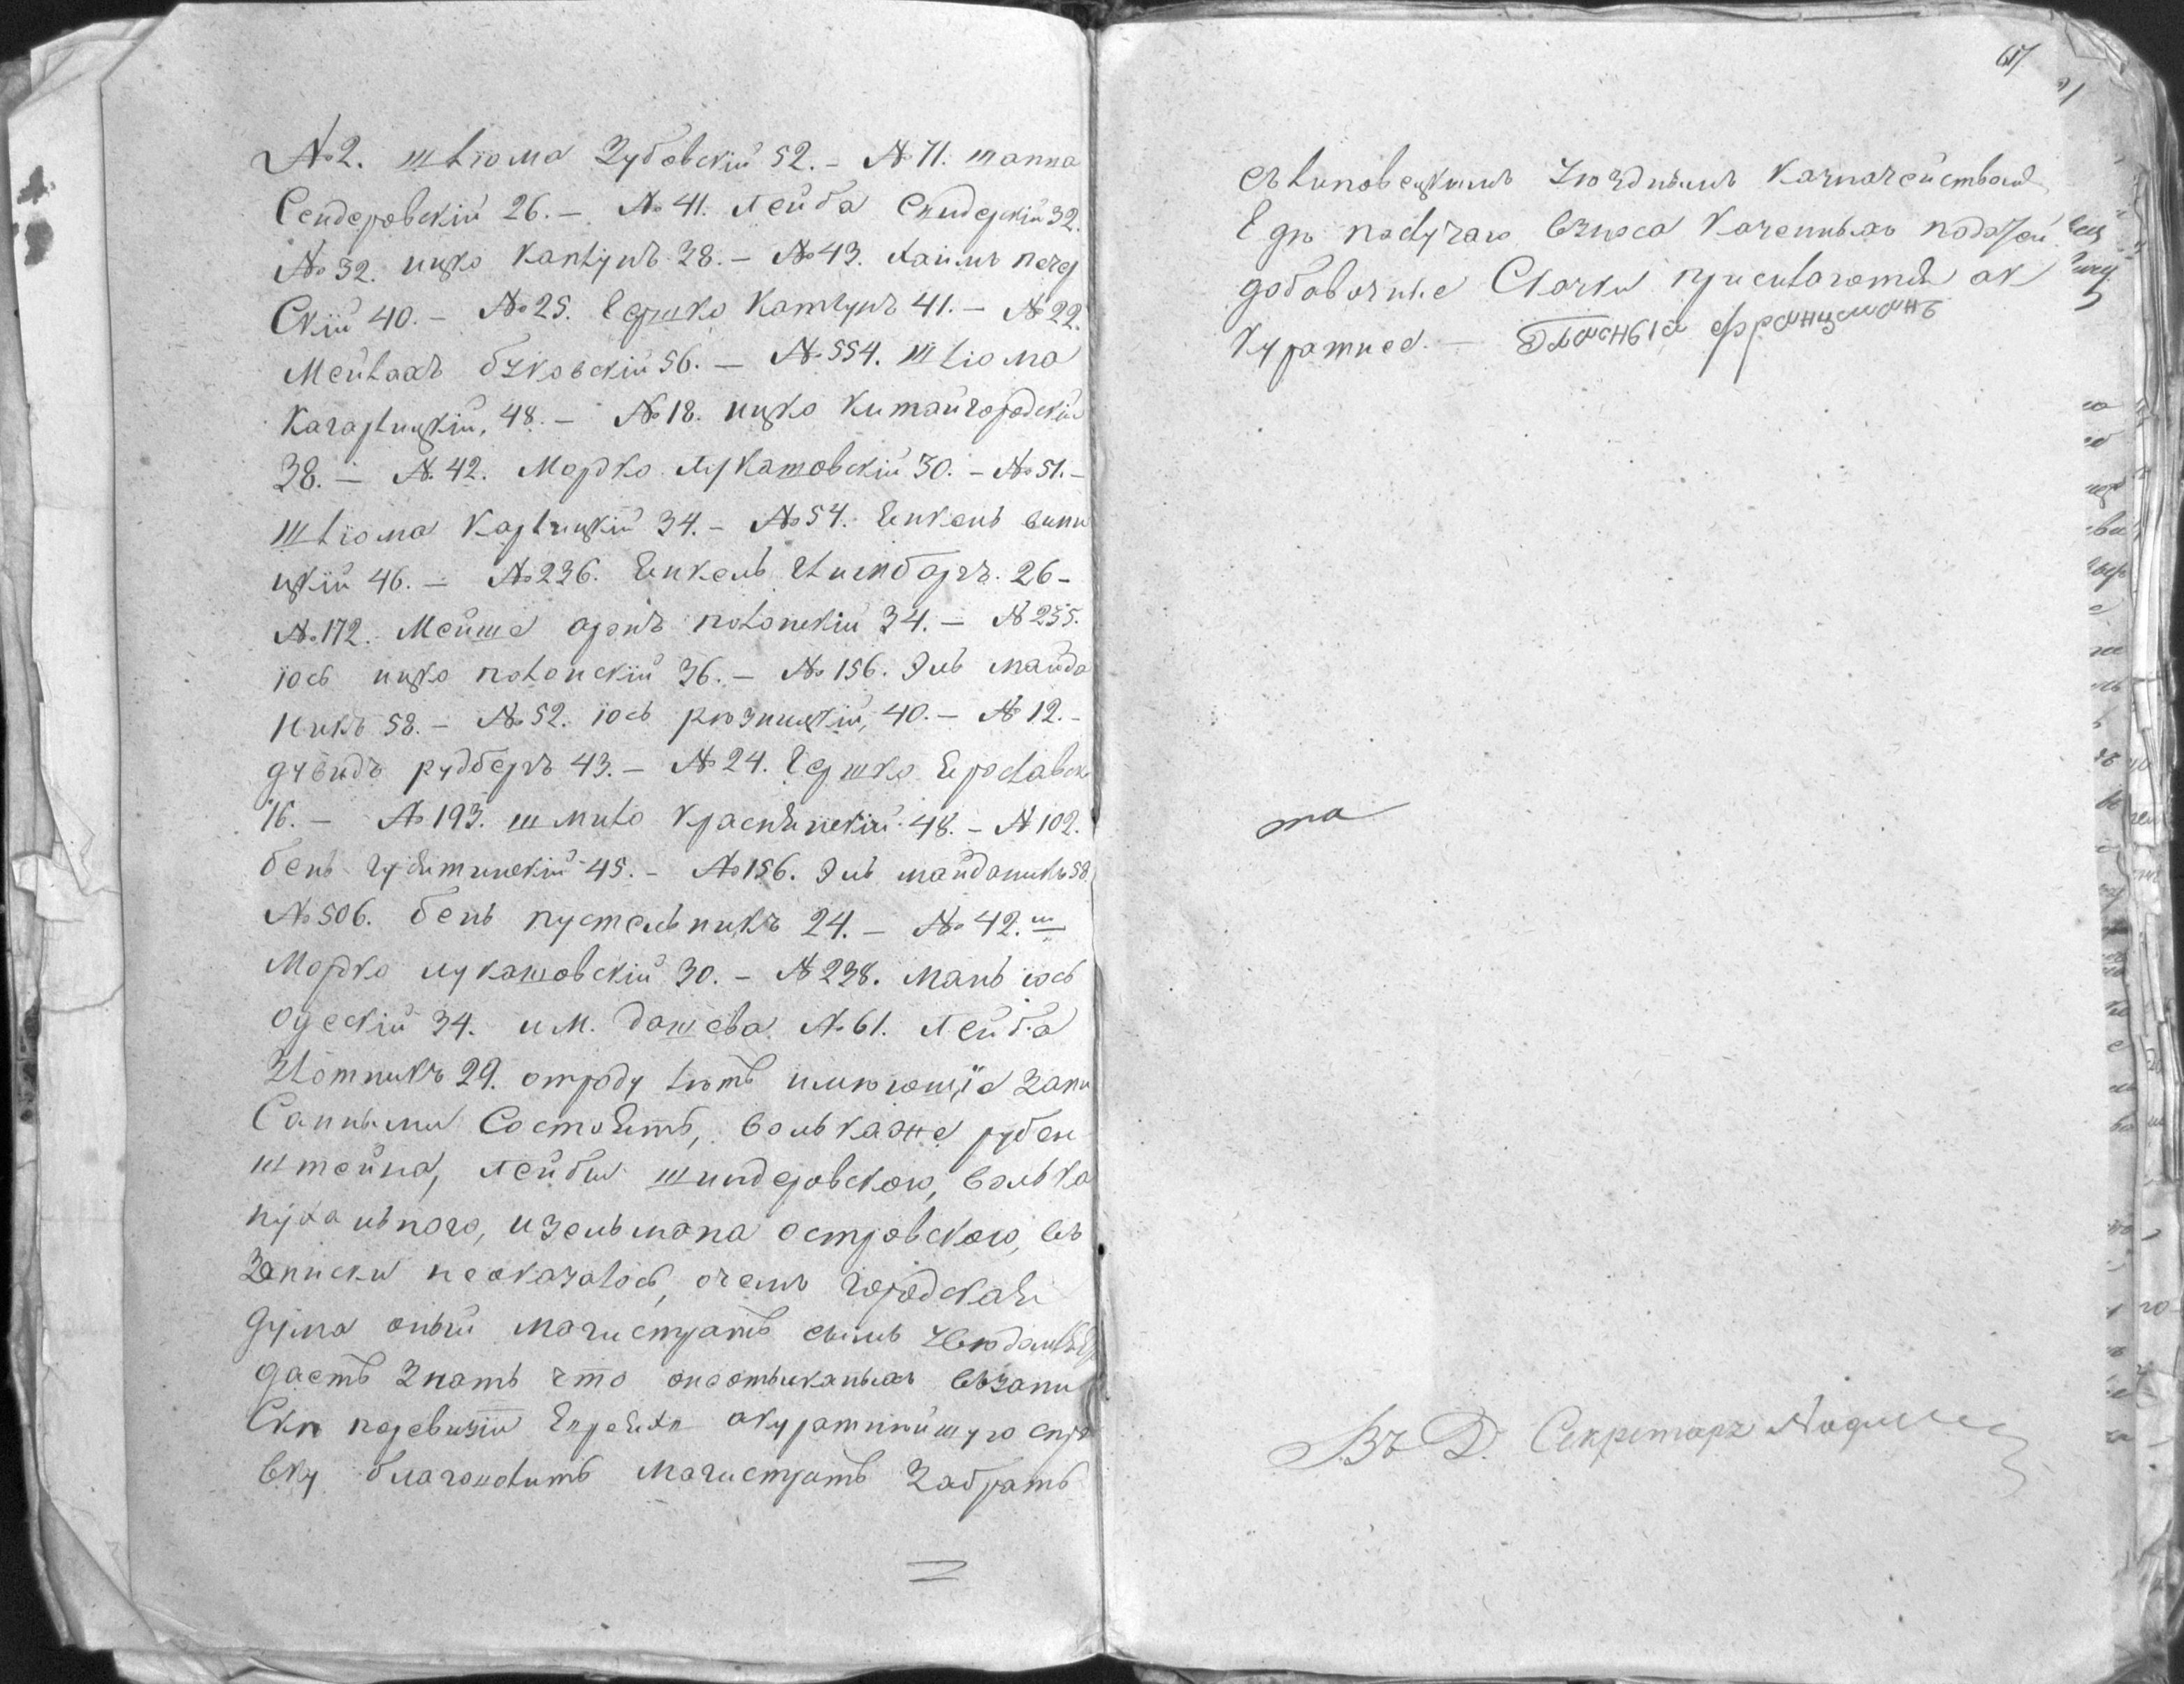 № 2. Шліома Зубовскій 52. – № 71. Шаппа
Сендеровскій 26. – № 41. Лейба Снидерскій 32.
№ 32. ицко Каплунъ 28. – № 43. Хаимъ печер
Скій 40. – № 25. Гершко Каплунъ 41. – № 22.
Мейлахъ бузковскій 56. – № 554. Шліома
Кагарлицкій, 48. – № 18. ицко Китайгородскій
38. – № 42. Мордко Лукашовскій 30. – № 51. –
Шліома Карлицкій 34. – № 54. Янкель вини
цкій 46. – № 236. Янкель 26 –
№ 172. Мейше аронъ полонскій 34. – № 235.
іось ицко полонскій 36. – № 156. Эль майда
никъ 58. – № 52. іось рѣзницкій, 40. – № 12. –
дувидъ рудберъ 43. – № 24. Гершко Ярославск
16. – № 193. шмило Краснянскій 48. – № 102.
бень 45. – № 156. Эль майданикъ 58.
№ 506. бень пустельникъ 24. – № 42.
Мордко лукашовскій 30. – № 238. Мань іось
одескій 34. и М. Дашева № 61. Лейба
Злотникъ 29. отроду лѣтъ имѣющіе запи
Санными Состоятъ, волькаже рубен
штейна, лейбы шиндеровского, волька
пухального, изельмана островского, въ
Записки неоказалось, очемъ городская
дума оный магистратъ симъ увѣдомляя
даетъ знать что онеотысканыхъ въ запи
Скѣ поревизіи Евреяхъ акуратнѣйшую спра
вку благоволитъ магистратъ Забрать
617
съ липовецкимъ уѣзднымъ казначействомъ
Где получаю взноса Казенныхъ податей
добавочные Скаски присилаются ак
Куратнее. – Гласный Францманъ
та
Въ Д. Секретаря